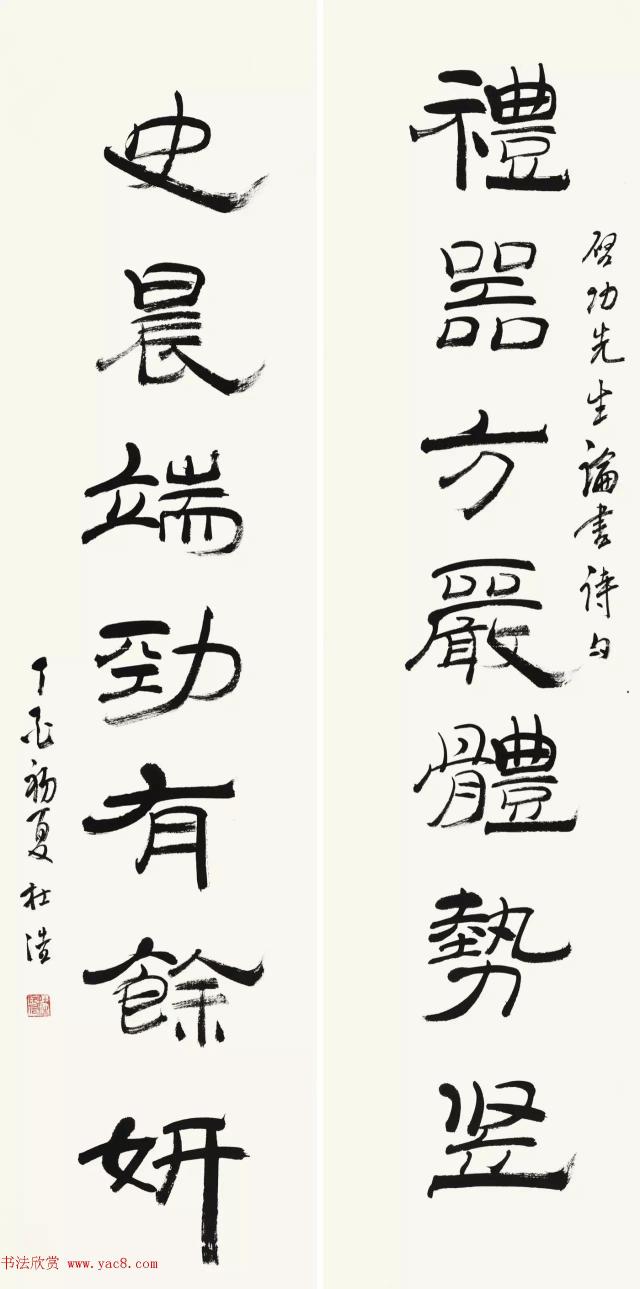 禮器方嚴體勢竖
啓功先生論書诗句
史晨端勁有餘妍
丁酉初夏杜浩
书法欣赏 www.yac8.com